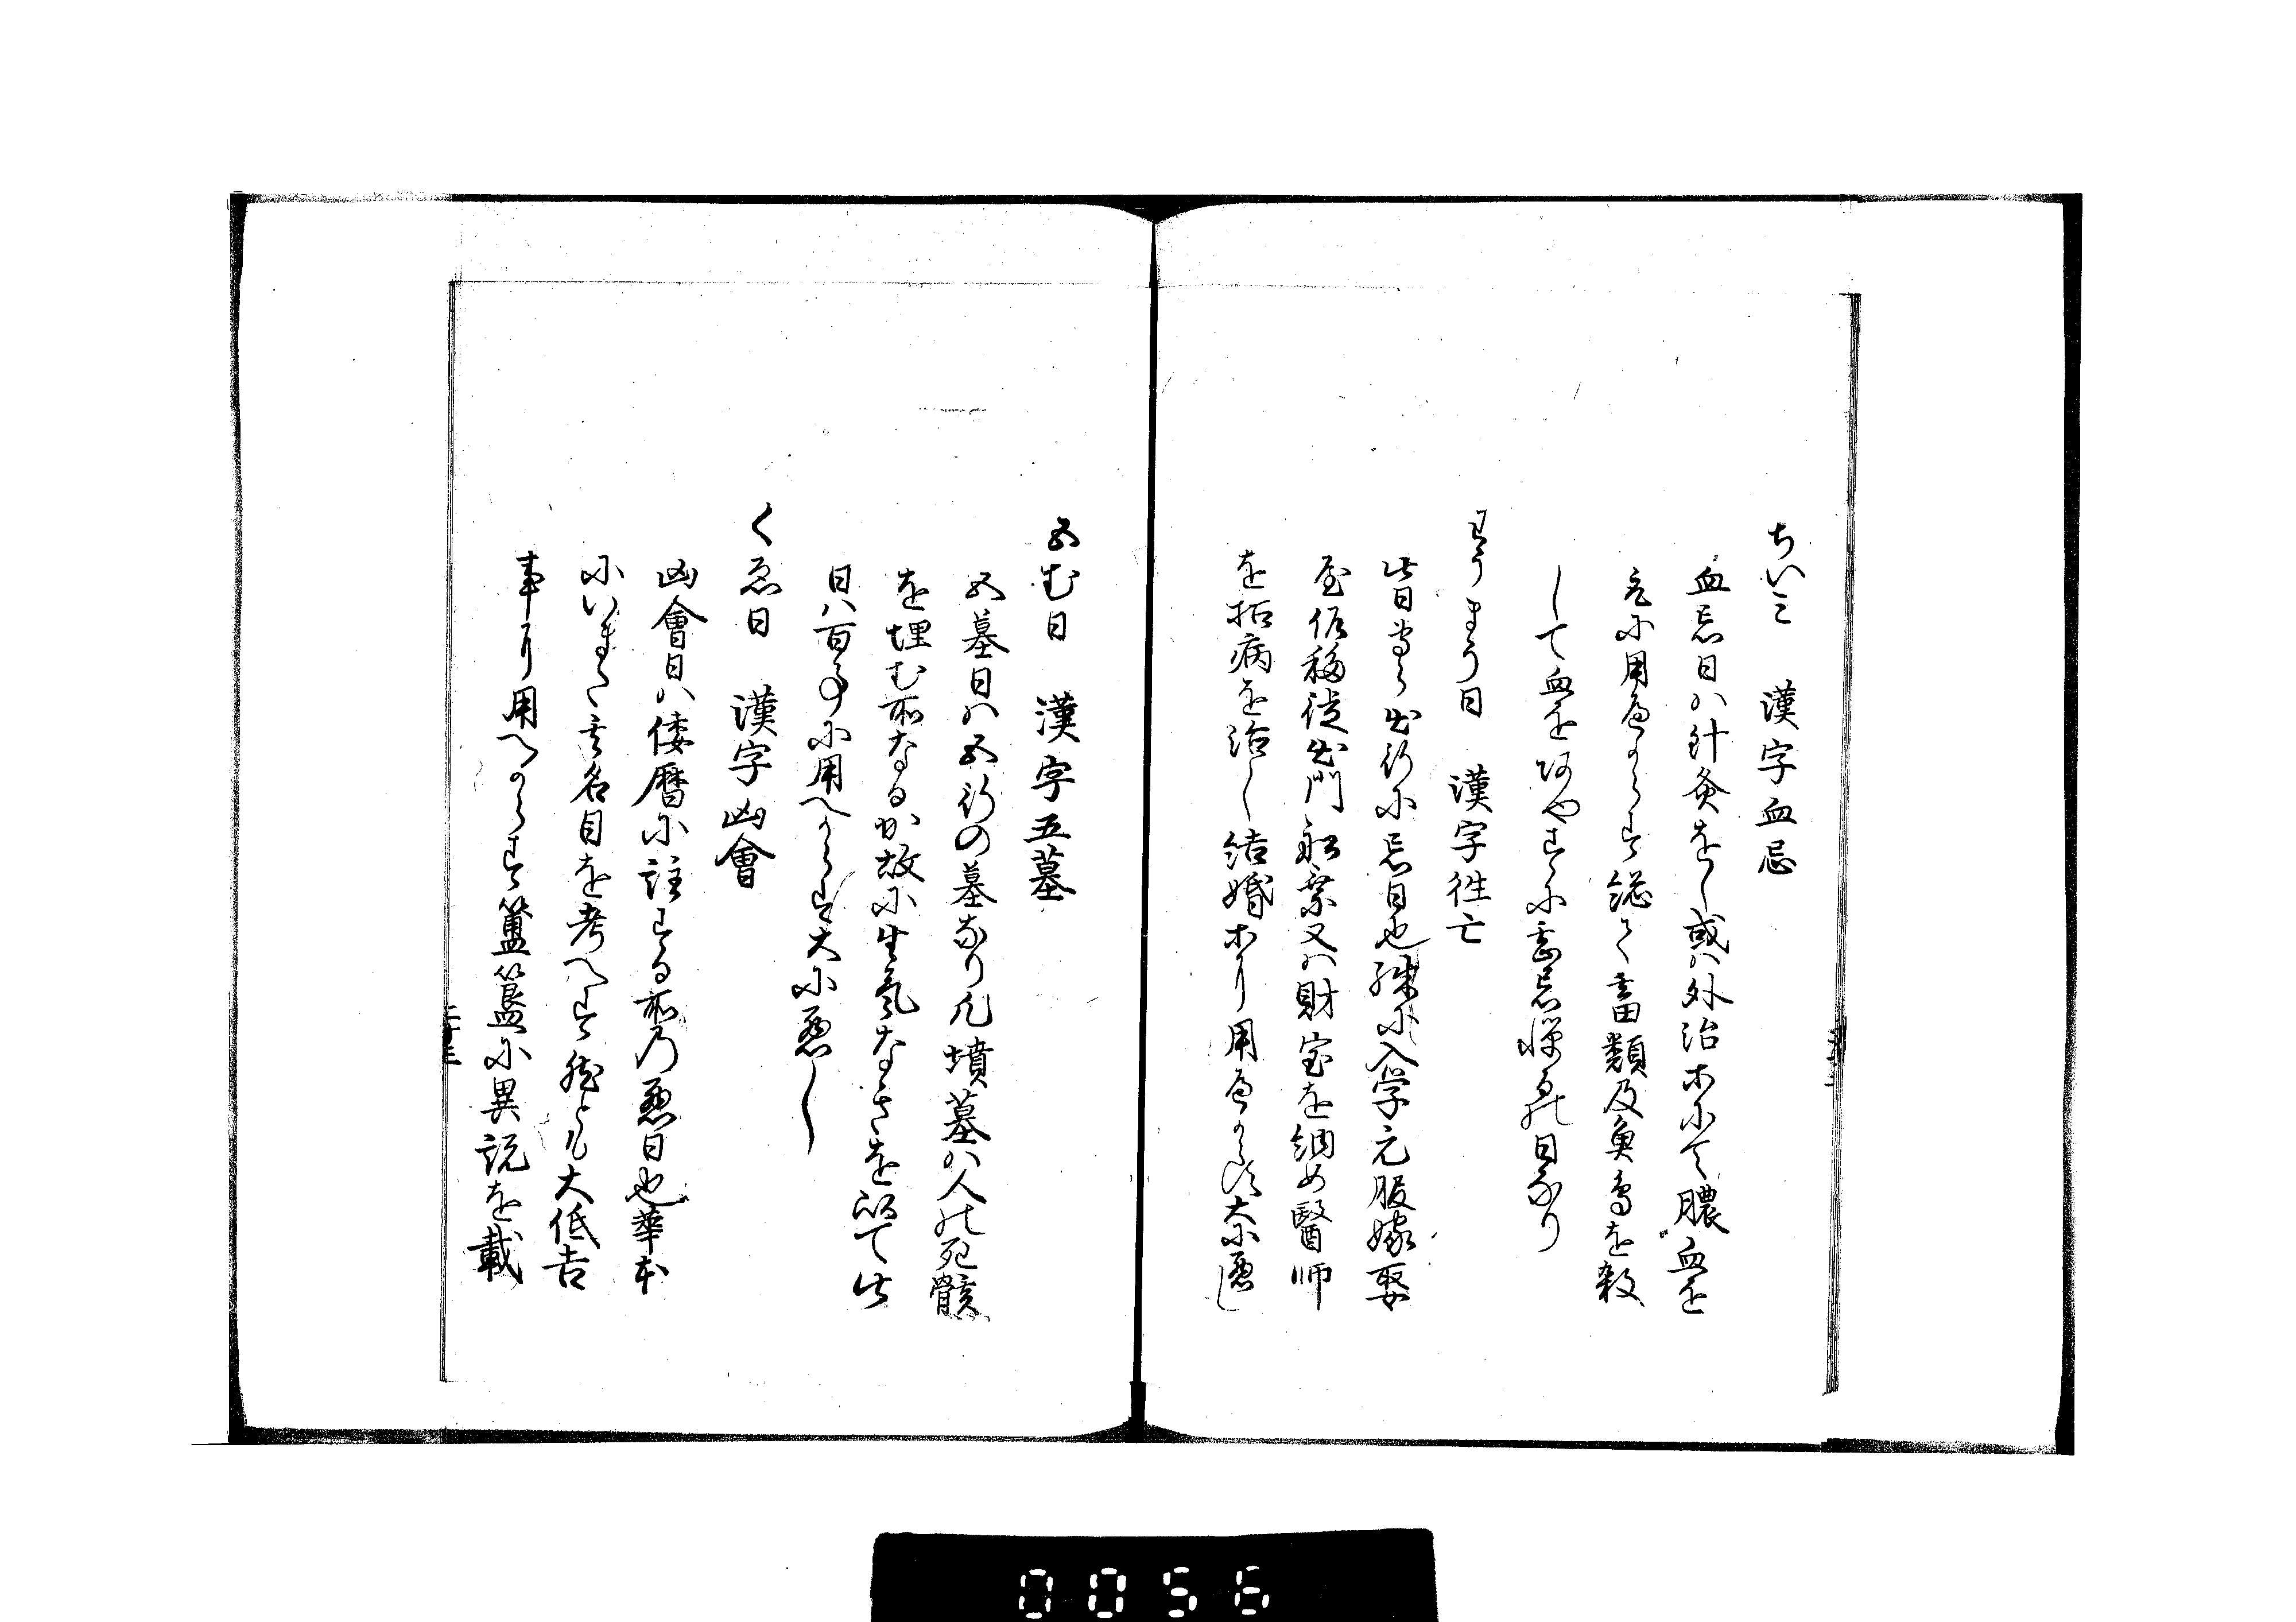 ちいミ　漢字血忌
血忌日ハ針灸をし或ハ外治ホにて膿血を
出に用へからす総て畜類及魚鳥を殺
して血をあやすに忌憚るの日なり
わうまう日　漢字徃亡
此日専ら出行に忌日也殊に入学元服嫁娶
屋作移徙出門私案又ハ財宝を納め醫師
を招病を治し結婚ホに用へからす大に悪し
五む日　漢字五墓
五墓日ハ五行の墓なり凡墳墓ハ人の死骸
を埋む所なるか故に生氣なきを以て此
日ハ百事に用へからす大に悪し
くゑ日　漢字凶會
凶會日ハ倭暦に註する所乃悪日也華本
にいまた其名目を考へす然とも大低吉
事に用へからす簠簋に異説を載
0056